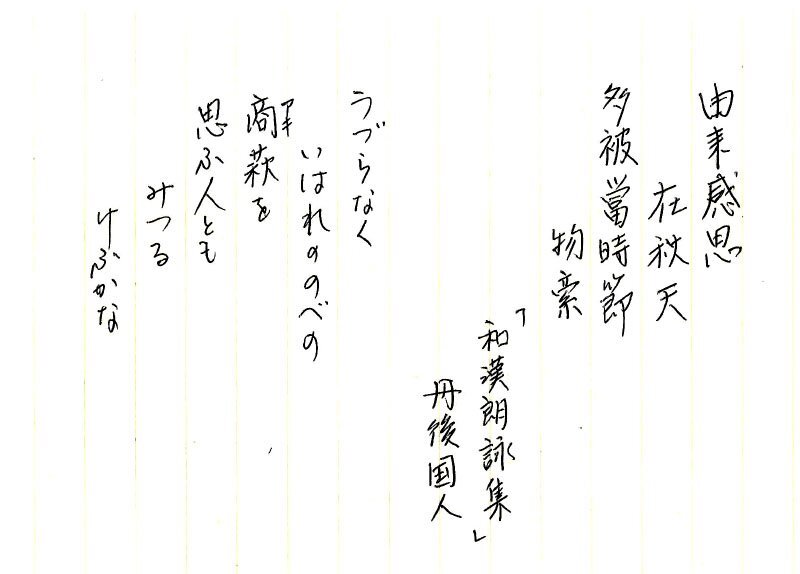 由来感思
在秋天
多被當時節
物牽
「和漢朗詠集」
丹後国人
うづらなく
いはれののべの
商萩を
アキ
思ふ人とも
みつる
けふかな